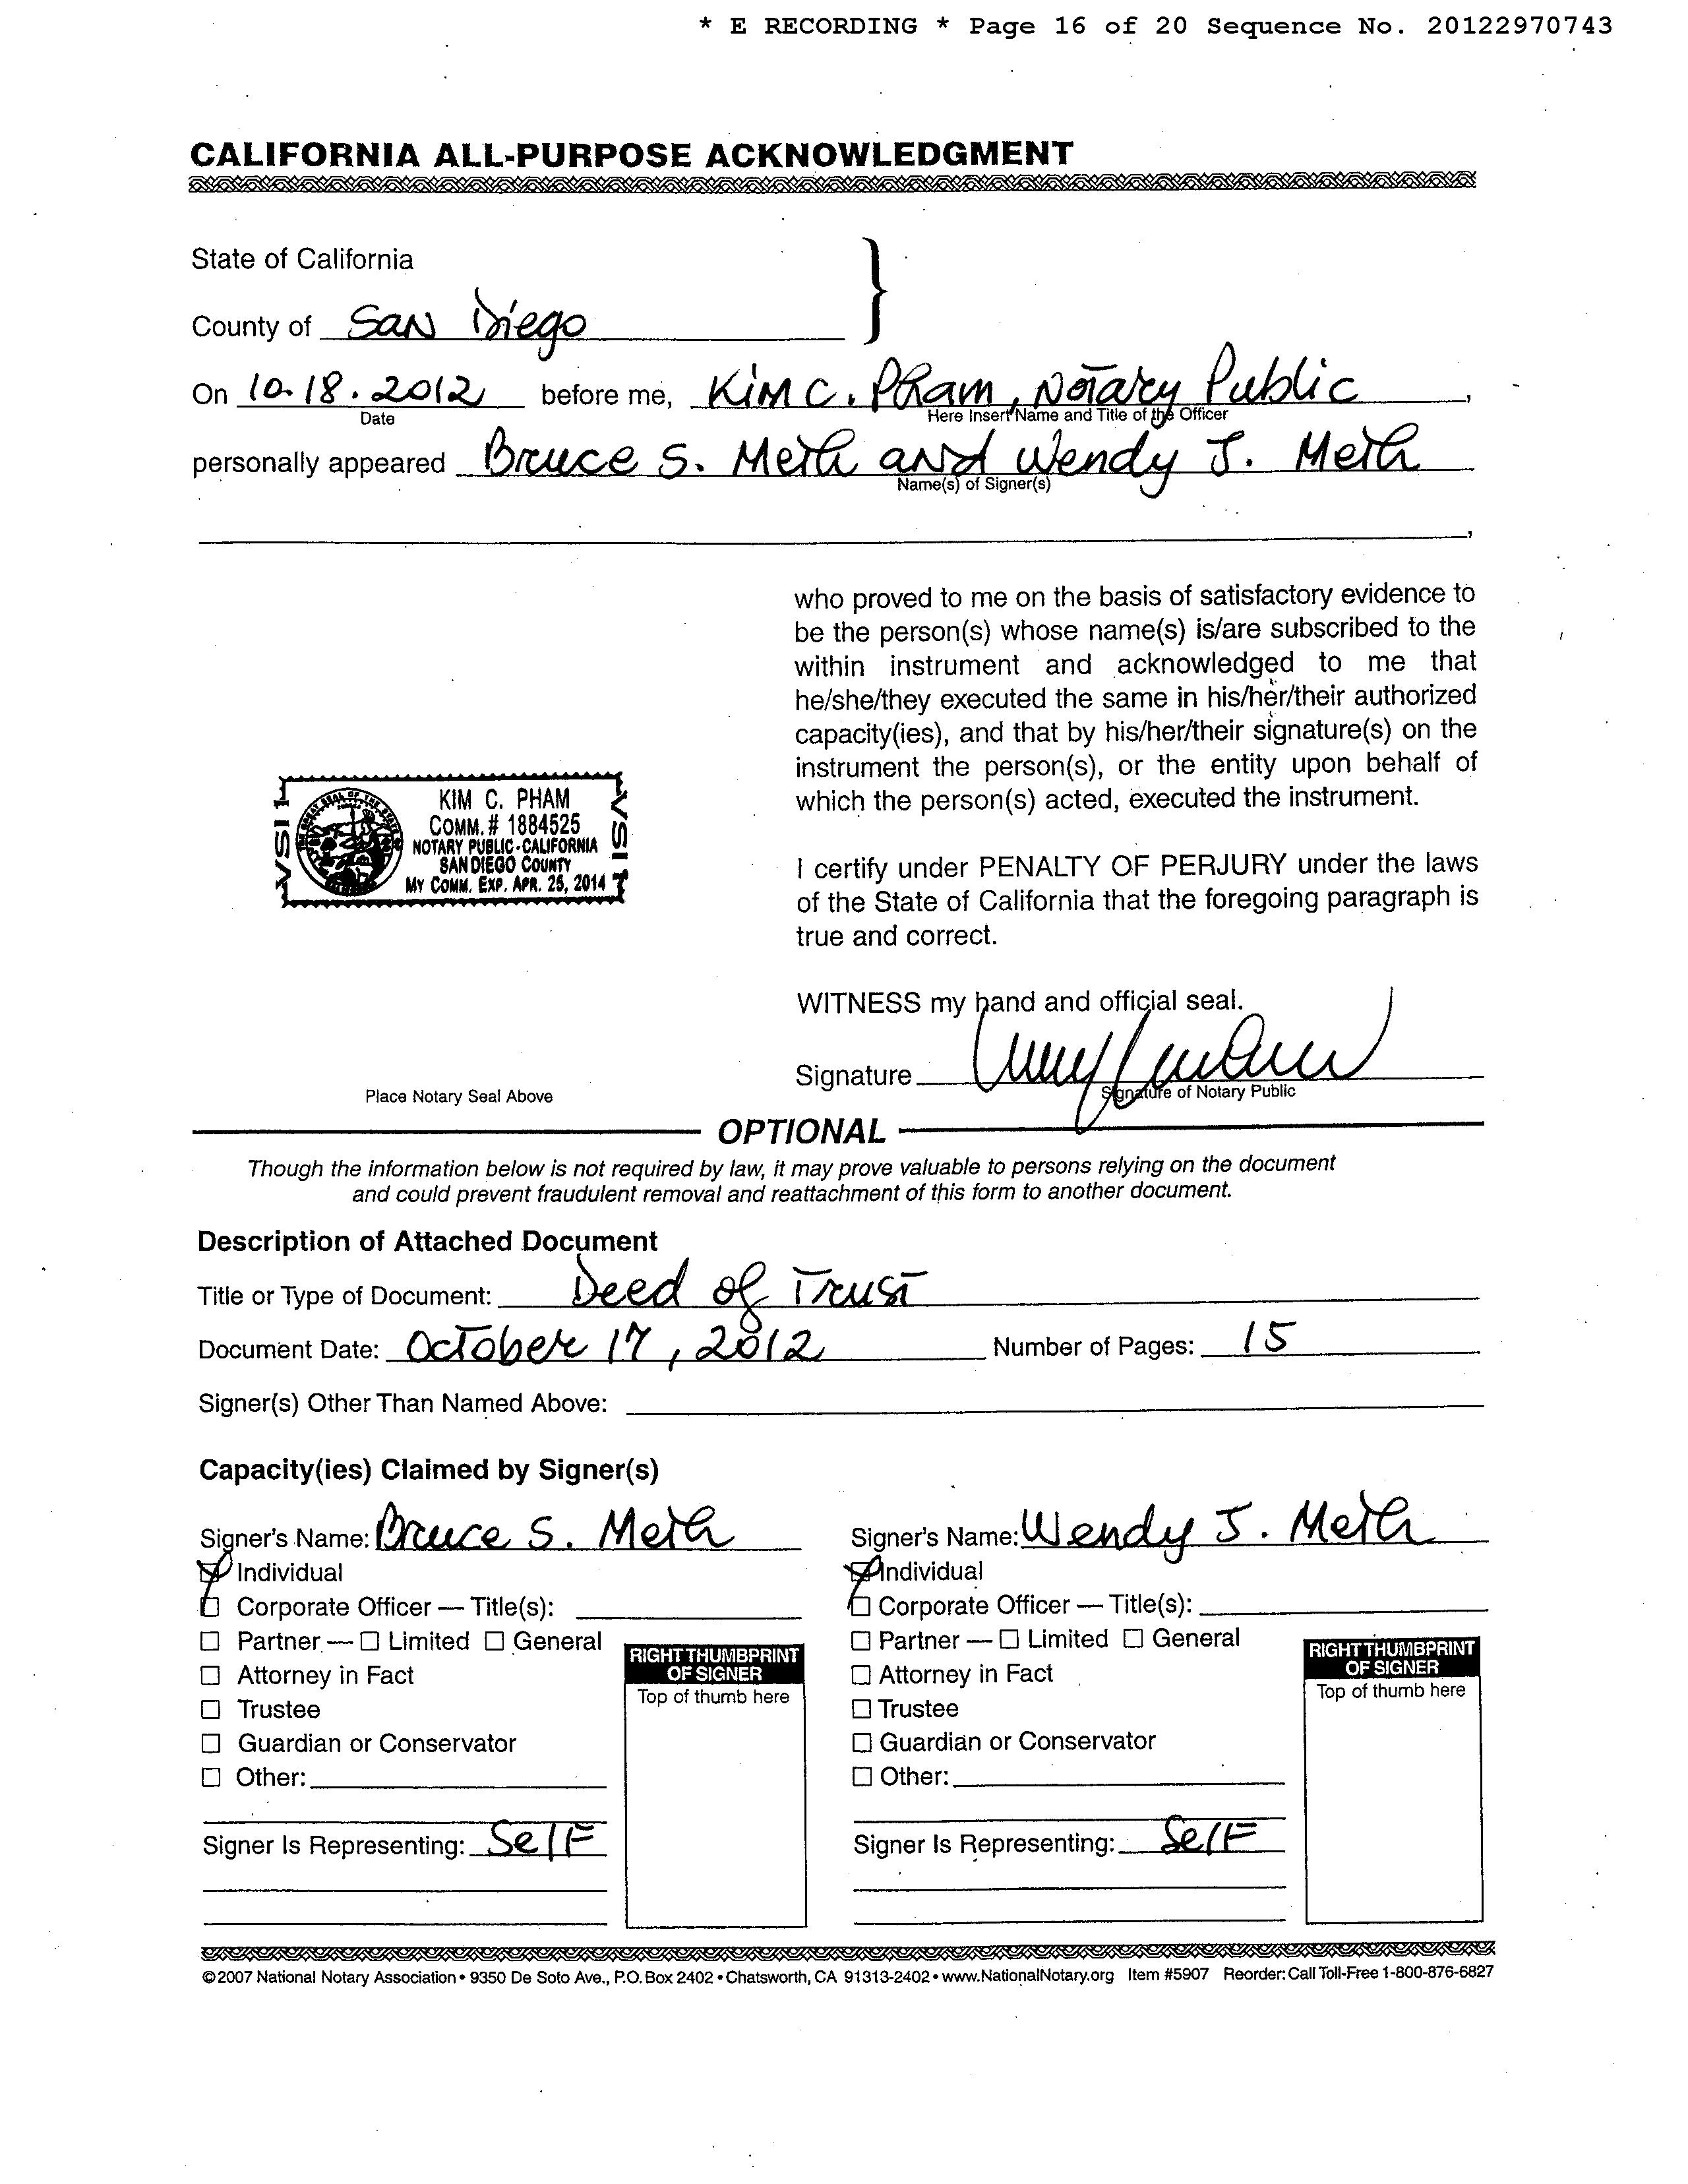 * E RECORDING * Page 16 of 20 Sequence No. 20122970743
CALIFORNIA ALL-PURPOSE ACKNOWLEDGMENT
State of California
County of San Diego
On 10.18.2012 before me, Kim C. Pham, Notary Public,
Date Here Insert Name and Title of the Officer
personally appeared Bruce S. Meth and Wendy J. Meth
Name(s) of Signer(s)
,
who proved to me on the basis of satisfactory evidence to
be the person(s) whose name(s) is/are subscribed to the
within instrument and acknowledged to me that
he/she/they executed the same in his/her/their authorized
capacity(ies), and that by his/her/their signature(s) on the
instrument the person(s), or the entity upon behalf of
which the person(s) acted, executed the instrument.
VSI 1
KIM C. PHAM
COMM. # 1884525
NOTARY PUBLIC-CALIFORNIA
SAN DIEGO COUNTY
MY COMM. EXP. APR. 25, 2014
VSI 1
I certify under PENALTY OF PERJURY under the laws
of the State of California that the foregoing paragraph is
true and correct.
WITNESS my hand and official seal.
Signature
Signature of Notary Public
Place Notary Seal Above
OPTIONAL
Though the information below is not required by law, it may prove valuable to persons relying on the document
and could prevent fraudulent removal and reattachment of this form to another document.
Description of Attached Document
Title or Type of Document: Deed of Trust
Document Date: October 17, 2012 Number of Pages: 15
Signer(s) Other Than Named Above:
Capacity(ies) Claimed by Signer(s)
Signer's Name: Bruce S. Meth
Individual
Corporate Officer — Title(s):
Partner — Limited General
Attorney in Fact
Trustee
Guardian or Conservator
Other:
Signer Is Representing: Self
RIGHT THUMBPRINT
OF SIGNER
Top of thumb here
Signer's Name: Wendy J. Meth
Individual
Corporate Officer — Title(s):
Partner — Limited General
Attorney in Fact
Trustee
Guardian or Conservator
Other:
Signer Is Representing: Self
RIGHT THUMBPRINT
OF SIGNER
Top of thumb here
©2007 National Notary Association • 9350 De Soto Ave., P.O. Box 2402 • Chatsworth, CA 91313-2402 • www.NationalNotary.org Item #5907 Reorder: Call Toll-Free 1-800-876-6827